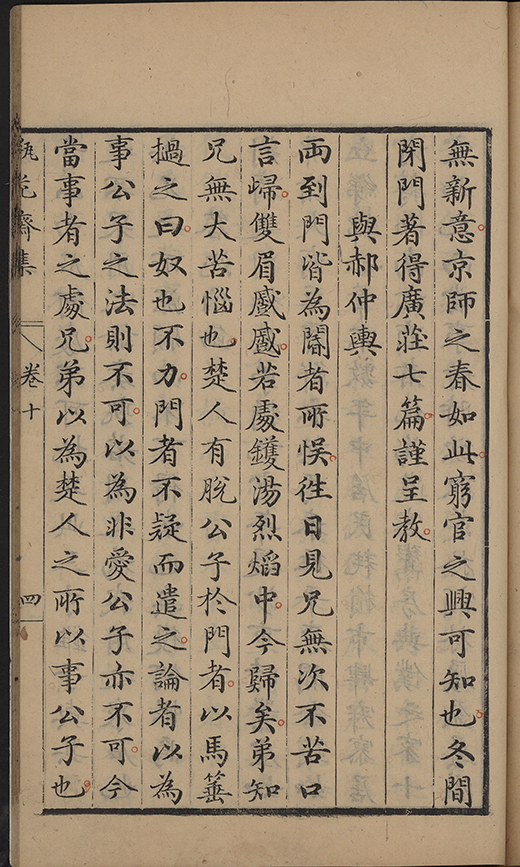 無新意京師之春如此窮官之興可知也冬間
閉門著得廣莊七篇謹呈教
與郝仲輿
兩到門皆為閽者所悮徃日見兄無次不苦口
言歸雙眉慼慼若處鑊湯烈熖中今歸矣弟知
兄無大苦惱也楚人有脫公子於門者以馬箠
撾之曰奴也不力門者不疑而遣之論者以為
事公子之法則不可以為非愛公子亦不可今
當事者之處兄弟以為楚人之所以事公子也
瓶花齋集
卷十
四